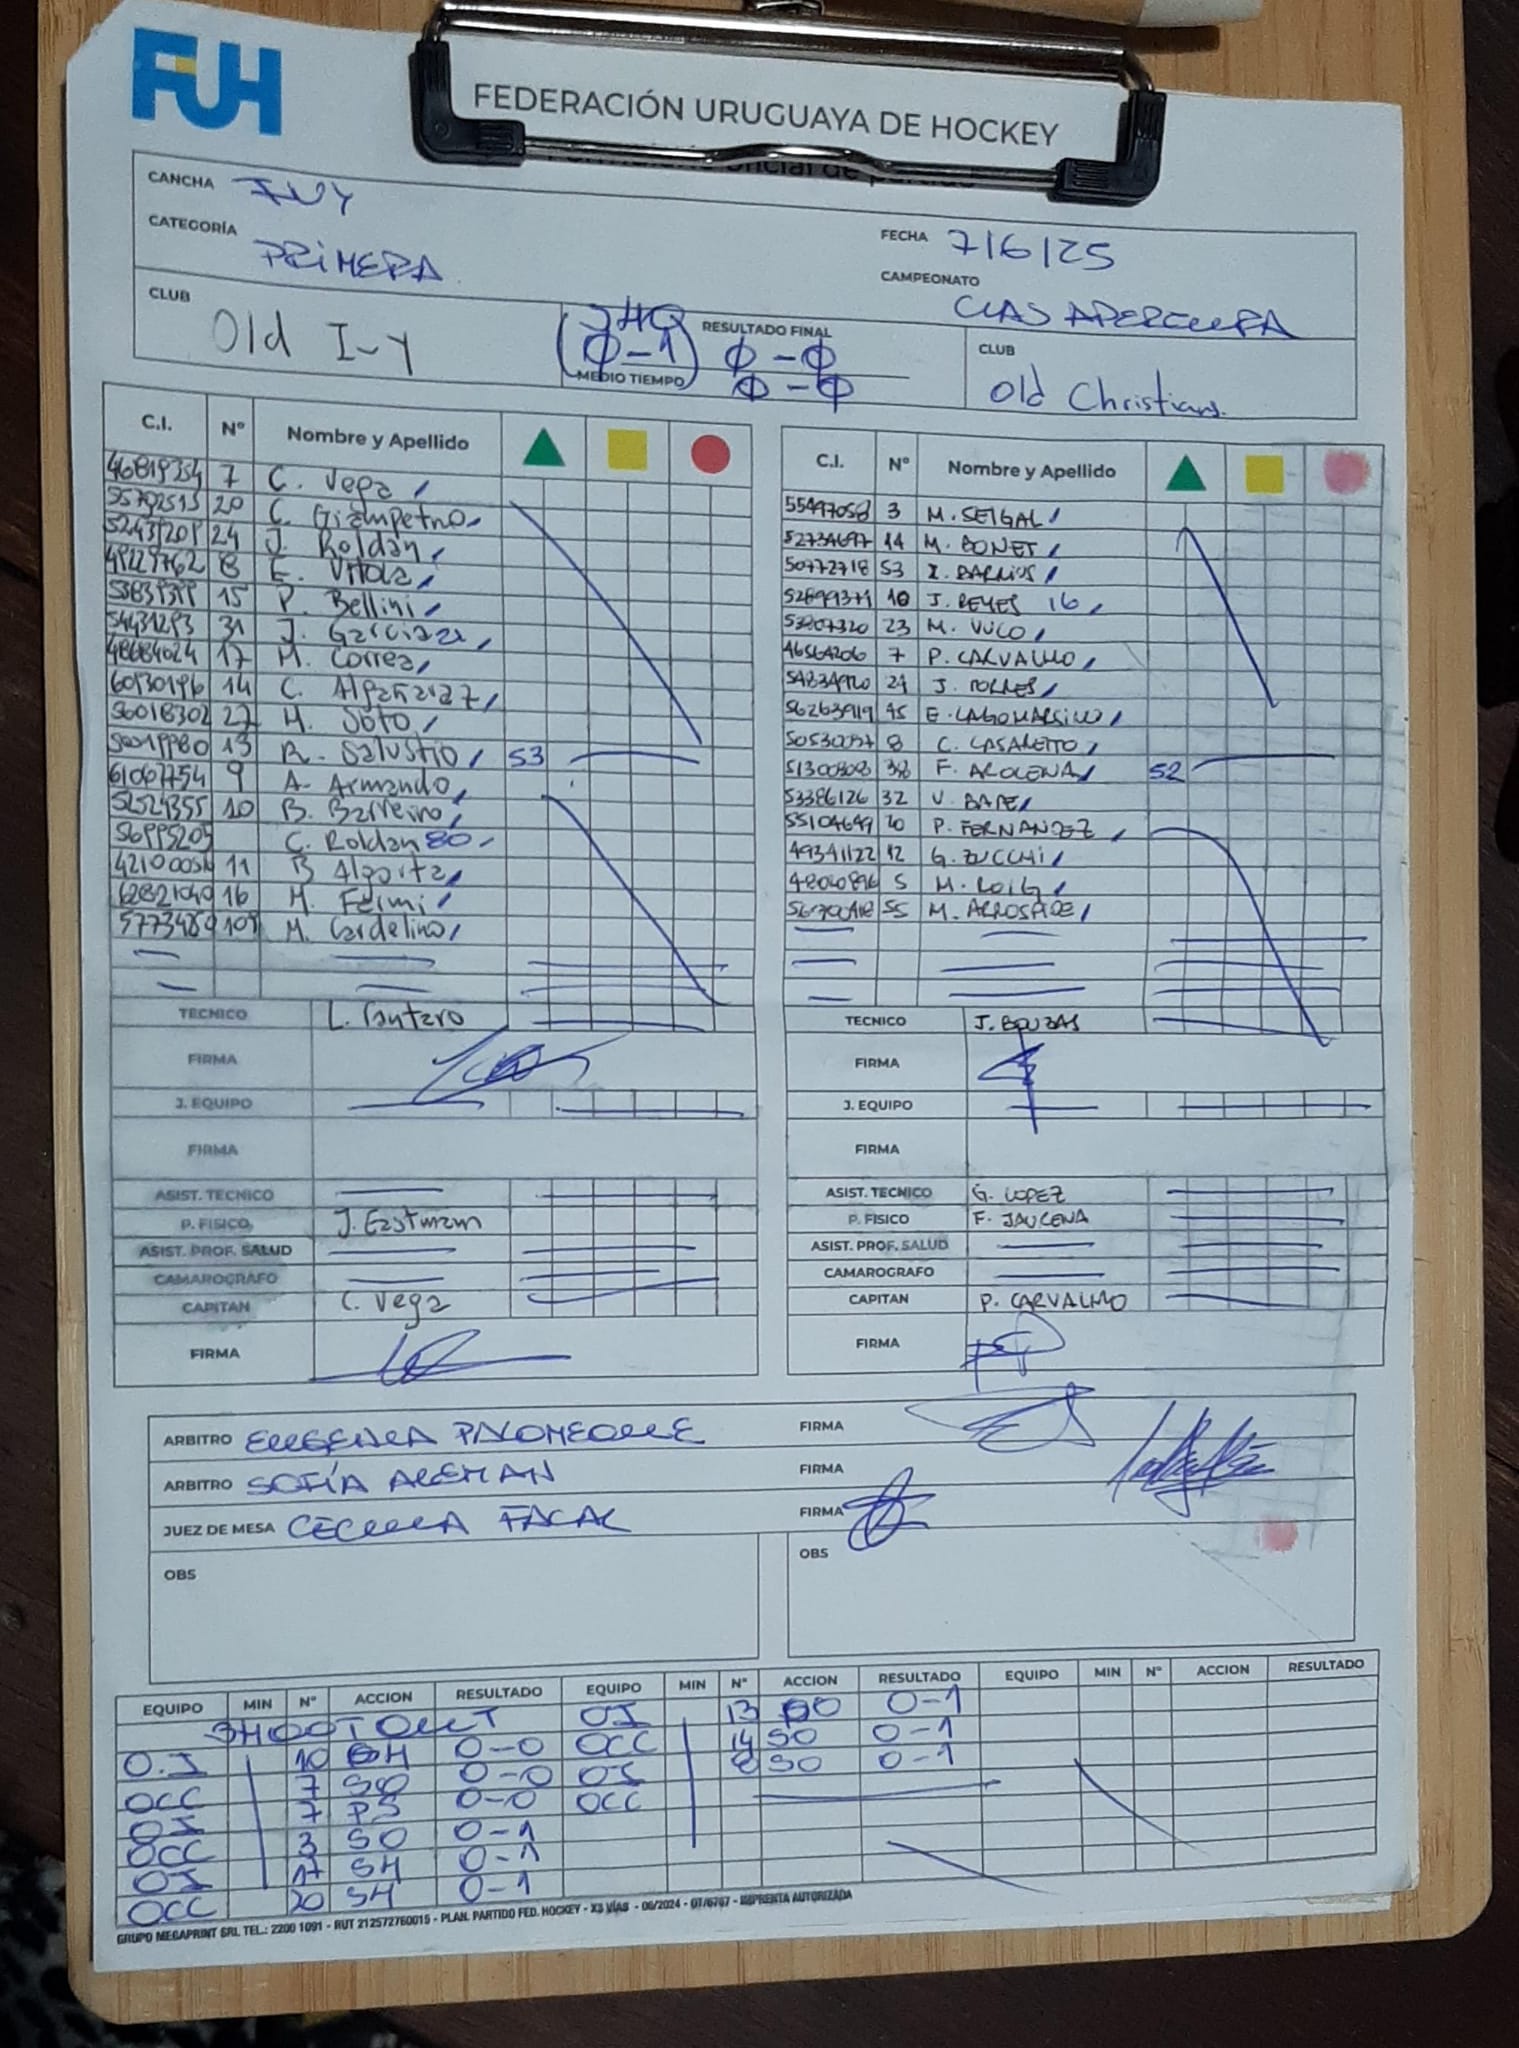 FUH
FEDERACIÓN URUGUAYA DE HOCKEY
CANCHA IUY
FECHA 7/6/25
CATEGORÍA PRIMERA
CAMPEONATO CLAS APERTURA
CLUB Old I-Y
SHO
(0-1) RESULTADO FINAL 0-0
MEDIO TIEMPO 0-0
CLUB Old Christians.
C.I. N° Nombre y Apellido
46819354 7 C. Vega
55702515 20 C. Giampetro
24 J. Roldán
49229762 8 E. Vitola
15 P. Bellini
54431293 31 J. Garciaza
48684024 17 M. Correa
60130196 14 C. Algañaraz
56018302 27 M. Soto
13 R. Salustio 53
61067754 9 A. Armando
52529355 10 B. Barreiro
56995205 C. Roldan 80
42100054 11 B Algorta
62821040 16 M. Fermi
M. Cardelino
TECNICO L. Cantero
FIRMA
J. EQUIPO
FIRMA
ASIST. TECNICO
P. FISICO J. Eastman
ASIST. PROF. SALUD
CAMAROGRAFO
CAPITAN C. Vega
FIRMA
C.I. N° Nombre y Apellido
55497058 3 M. SEIGAL
52734697 14 M. BONET
50772718 53 I. BARRIOS
52899371 10 J. REYES 16
53207320 23 M. VUCO
46564206 7 P. CARVALHO
J. TORRES
56263919 45 E. LAGOMARSINO
8 C. CASARETTO
38 F. AROCENA 52
53386126 32 V. BAPE
55104649 20 P. FERNANDEZ
49341122 12 G. ZUCCHI
5 M. ROIG
55 M. ARROSPIDE
TECNICO J. BOUZAS
FIRMA
J. EQUIPO
FIRMA
ASIST. TECNICO G. LOPEZ
P. FISICO F. JAUCENA
ASIST. PROF. SALUD
CAMAROGRAFO
CAPITAN P. CARVALHO
FIRMA
ARBITRO EUGENIA PALOMEQUE FIRMA
ARBITRO SOFÍA ALEMAN FIRMA
JUEZ DE MESA CECILIA FACAL FIRMA
OBS
OBS
EQUIPO MIN N° ACCION RESULTADO EQUIPO MIN N° ACCION RESULTADO EQUIPO MIN N° ACCION RESULTADO
SHOOTOUT OI 13 0-1
O.I 10 SH 0-0 OCC 14 SO 0-1
OCC 7 SO 0-0 OI 8 SO 0-1
OI 7 PS 0-0 OCC
OCC 3 SO 0-1
OI 17 SH 0-1
OCC 20 SH 0-1
GRUPO MEGAPRINT SRL TEL.: 2200 1091 - RUT 212572760015 - PLAN. PARTIDO FED. HOCKEY - X3 VÍAS - 06/2024 - OT/6767 - IMPRENTA AUTORIZADA